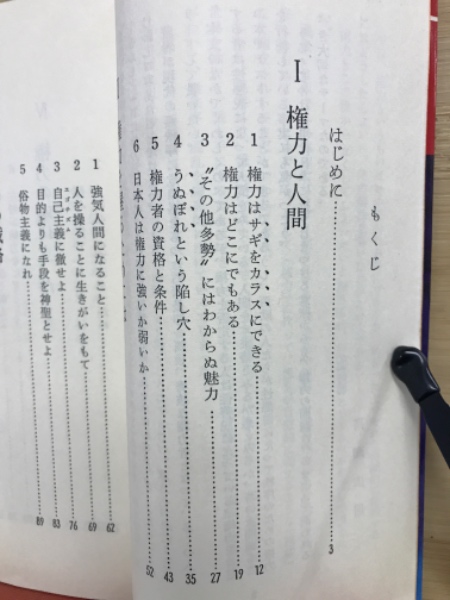 もくじ
はじめに……3
I 権力と人間
1 権力はサギをカラスにできる……12
2 権力はどこにでもある……19
3 〝その他多勢〟にはわからぬ魅力……27
4 うぬぼれという陥し穴……35
5 権力者の資格と条件……43
6 日本人は権力に強いか弱いか……52
1 強気人間になること……62
2 人を操ることに生きがいをもて……69
3 自己主義に徹せよ……76
4 目的よりも手段を神聖とせよ……83
5 俗物主義になれ……89